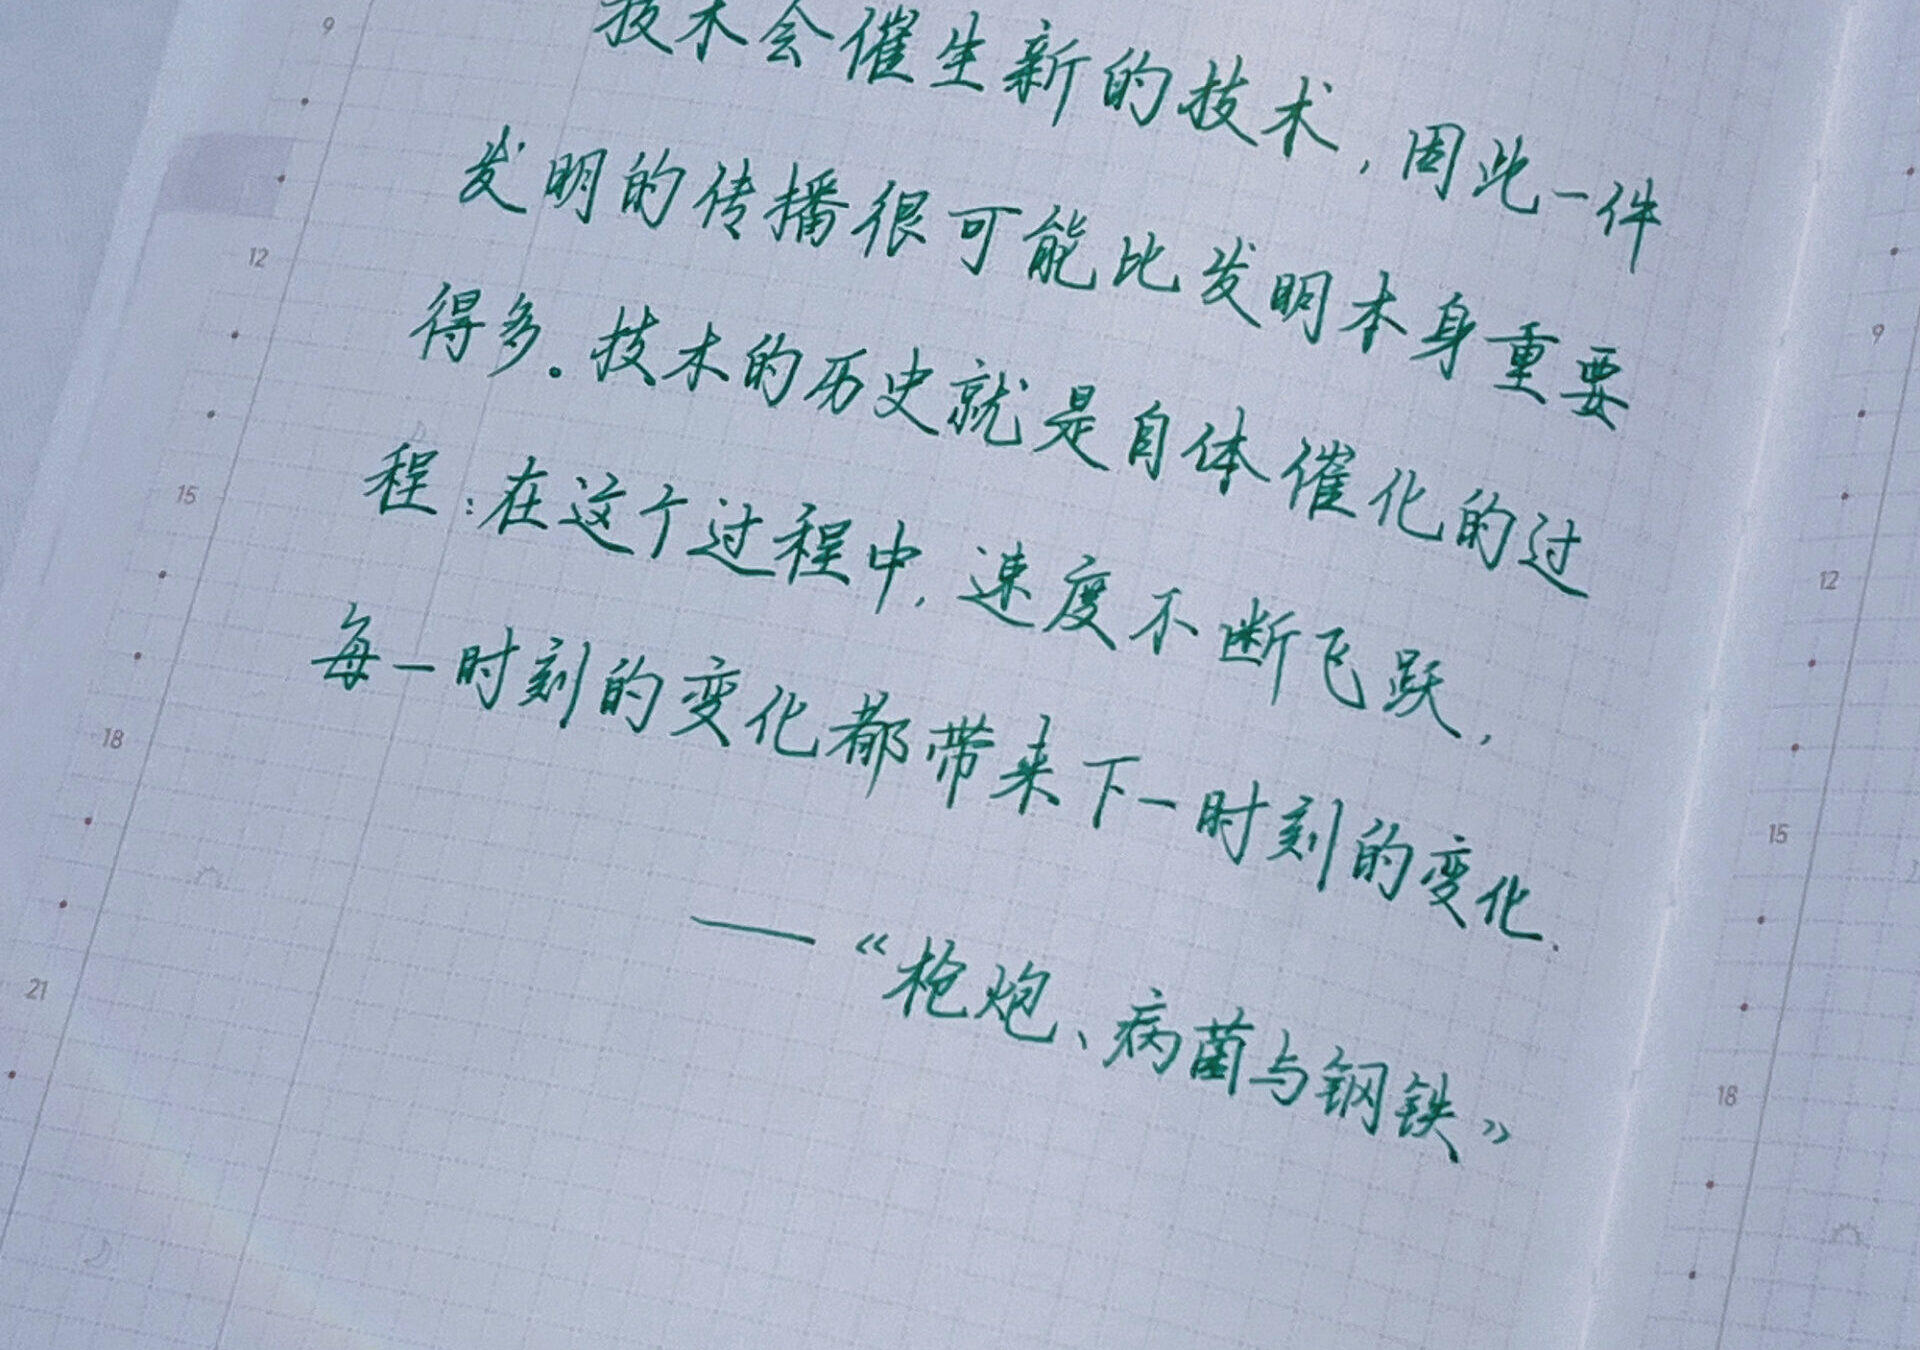 技术会催生新的技术,因此一件
发明的传播很可能比发明本身重要
得多。技术的历史就是自体催化的过
程:在这个过程中,速度不断飞跃,
每一时刻的变化都带来下一时刻的变化.
——《枪炮、病菌与钢铁》
9
12
15
18
21
9
12
15
18